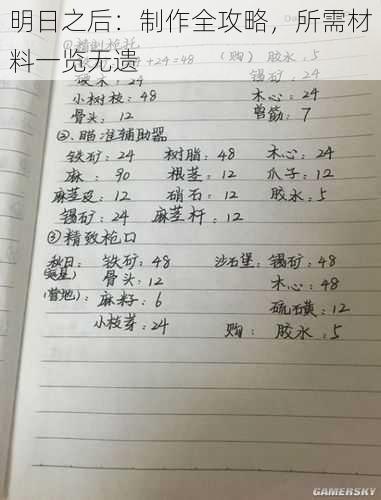 明日之后：制作全攻略，所需材
料一览无遗
①精制枪托
+24=48 （购）胶水：5
硬木：24 锡矿：24
小树枝：48 木心：24
骨头：12 兽筋：7
②.瞄准辅助器
铁矿：24 树脂：48 木心：24
麻：90 根茎：12 爪子：12
麻茎皮：12 硝石：12 胶水：5
锡矿：24 麻茎杆：12
③精致枪口
秋日：铁矿：48 沙石堡：锡矿：48
骨头：12 木心：48
（营地）：麻籽：6 硫磺：12
小枝芽：24 购：胶水：5
GAMERSKY